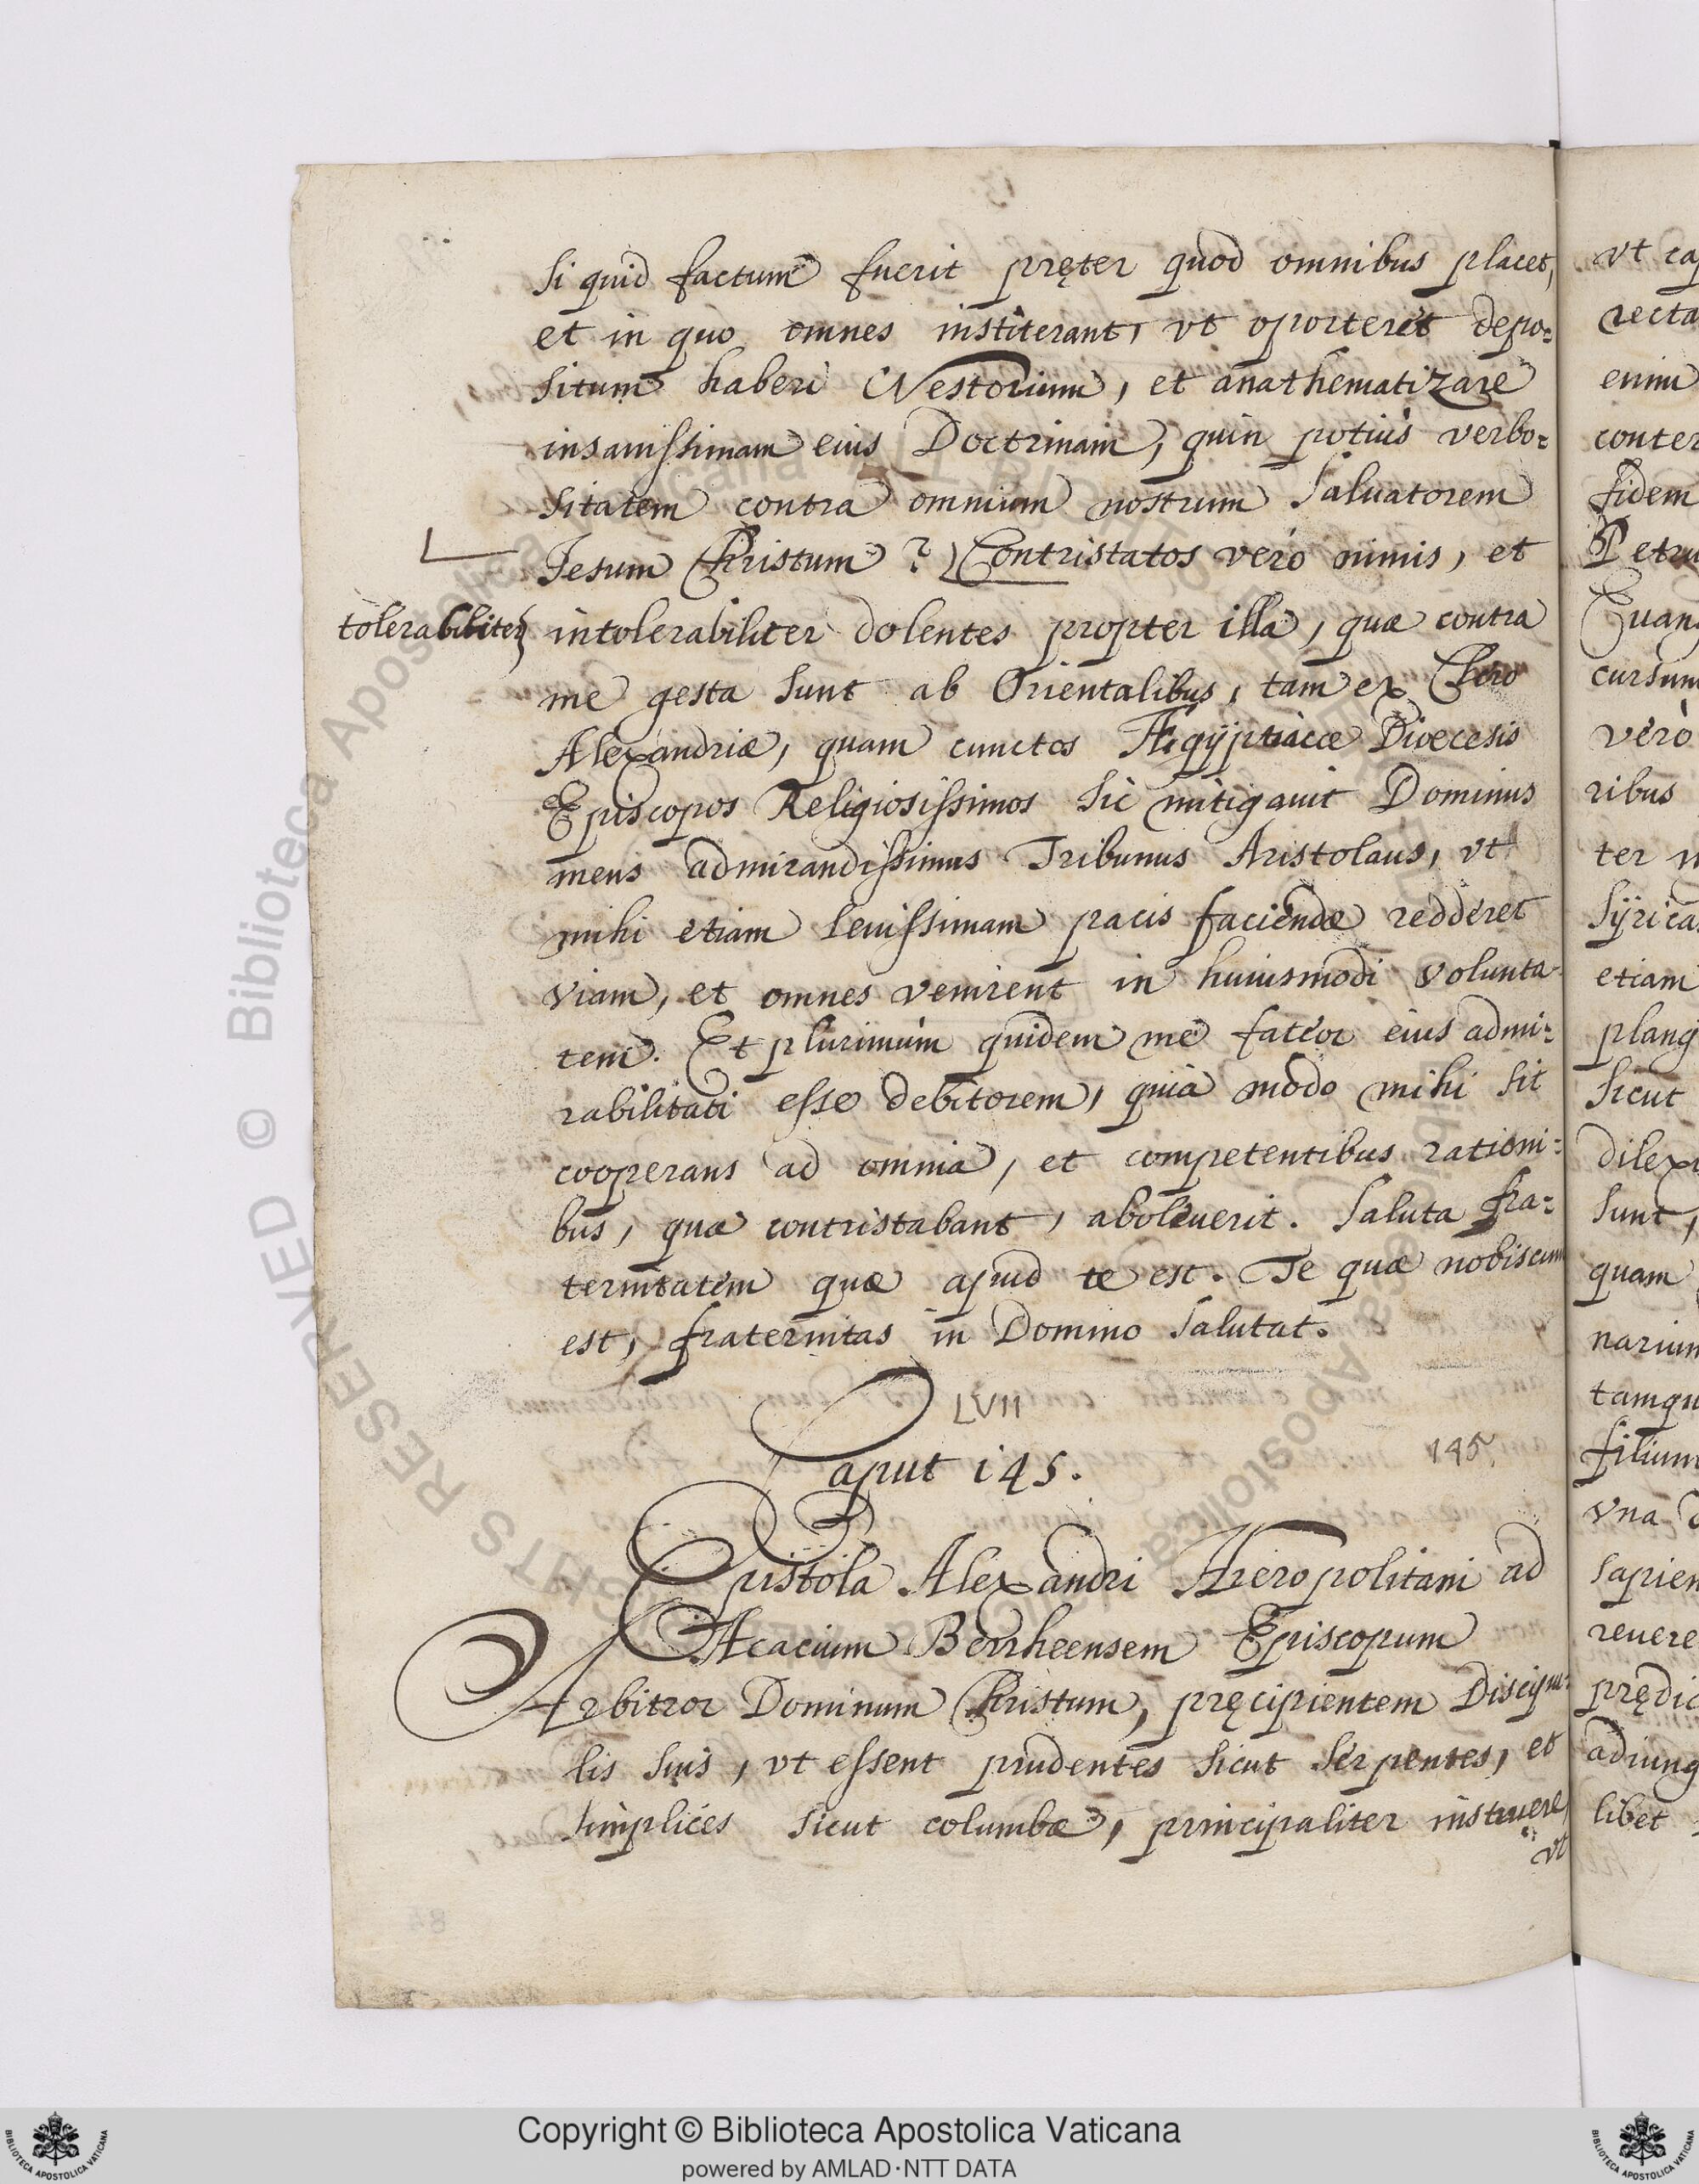 si quid factum fuerit pręter quod omnibus placet,
et in quo omnes institerant, vt oporteret depo=
situm haberi Nestorium, et anathematizare
insanissimam eius Doctrinam, quin potius verbo=
sitatem contra omnium nostrum Saluatorem
Iesum Christum? Contristatos vero nimis, et
tolerabiliter
intolerabiliter dolentes propter illa, quæ contra
me gesta sunt ab Orientalibus, tam ex Clero
Alexandriæ, quam cunctos Ægÿptiacæ Diœcesis
Episcopos Religiosissimos sic mitigauit Dominus
meus admirandissimus Tribunus Aristolaus, vt
mihi etiam leuissimam pacis faciendæ redderet
viam, et omnes venirent in huiusmodi volunta-
tem. Et plurimùm quidem me fateor eius admi=
rabilitati esse debitorem, quia modo mihi sit
cooperans ad omnia, et competentibus rationi=
bus, quæ contristabant, aboleuerit. Saluta fra=
ternitatem quæ apud te est. Te quæ nobiscum
est, fraternitas in Domino salutat.
LVII
Caput 145.
145
Epistola Alexandri Hieropolitani ad
Acacium Berrheensem Episcopum
Arbitror Dominum Christum, pręcipientem Discipu=
lis suis, vt essent prudentes sicut serpentes, et
simplices sicut columbæ, principaliter instruere,
vt
vt ca
recta
enim
conter
fidem
Petru
Quan
cursum
verò
ribus
ter
Sÿrica
etiam
plang
sicut
dilex
sunt,
quam
narium
tamqu
filium
vna
sapien
reuere
prędic
adiung
libet
© Biblioteca Apostolica Vaticana
RIGHTS RESERVED
Copyright © Biblioteca Apostolica Vaticana
powered by AMLAD·NTT DATA
BIBLIOTECA APOSTOLICA VATICANA
BIBLIOTECA APOSTOLICA VATICANA